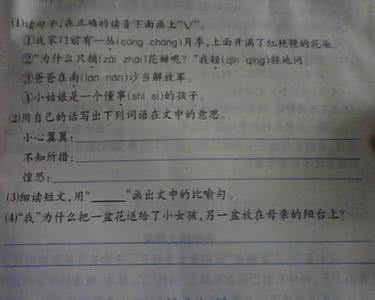 (1)读句子,在正确的读音下面画上“√”。
①我家门前有一丛(cóng cháng)月季,上面开满了红艳艳的花朵
②“为什么只摘(zāi zhāi)花瓣呢?”我轻(qīn qīng)轻地问
③爸爸在南(lan nán)沙当解放军。
④小姑娘是一个懂事(shì sì)的孩子。
(2)用自己的话写出下列词语在文中的意思。
小心翼翼:
不知所措:
惶恐:
(3)细读短文,用“______”画出文中的比喻句。
(4)“我”为什么把一盆花送给了小女孩,另一盆放在母亲的阳台上?